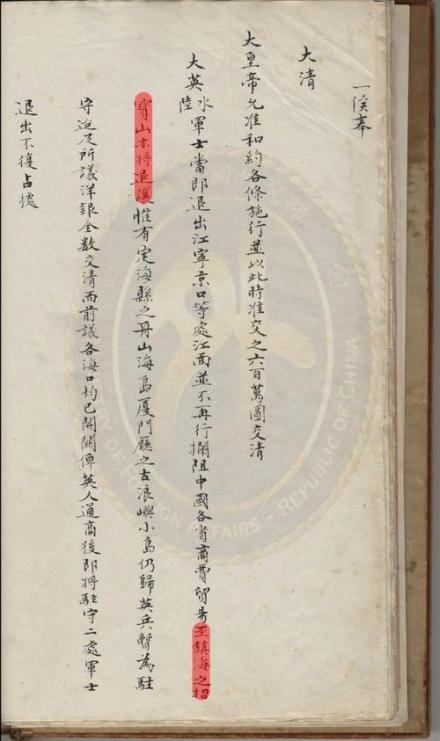 一俟奉
大清
大皇帝允准和約各條施行並以此時准交之六百萬圓交清
大英水陸軍士當即退出江寧京口等處江面並不再行攔阻中國各省商賈貿易至鎮海之招
寶山亦將退讓惟有定海縣之舟山海島廈門廳之古浪嶼小島仍歸英兵暫為駐
守迨及所議洋銀全數交清而前議各海口均已開闢俾英人通商後即將駐守二處軍士
退出不復占據
OF FOREIGN AFFAIRS - REPUBLIC OF CHINA